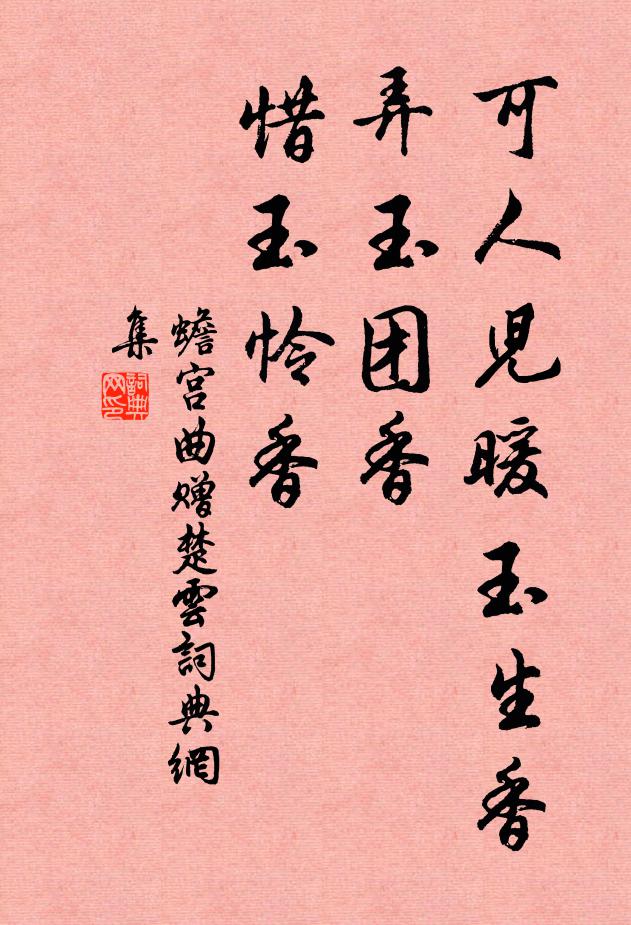 可人児暖玉生香
弄玉团香
惜玉怜香
蟾宫曲赠楚雲詞典網
集
詞典
网印